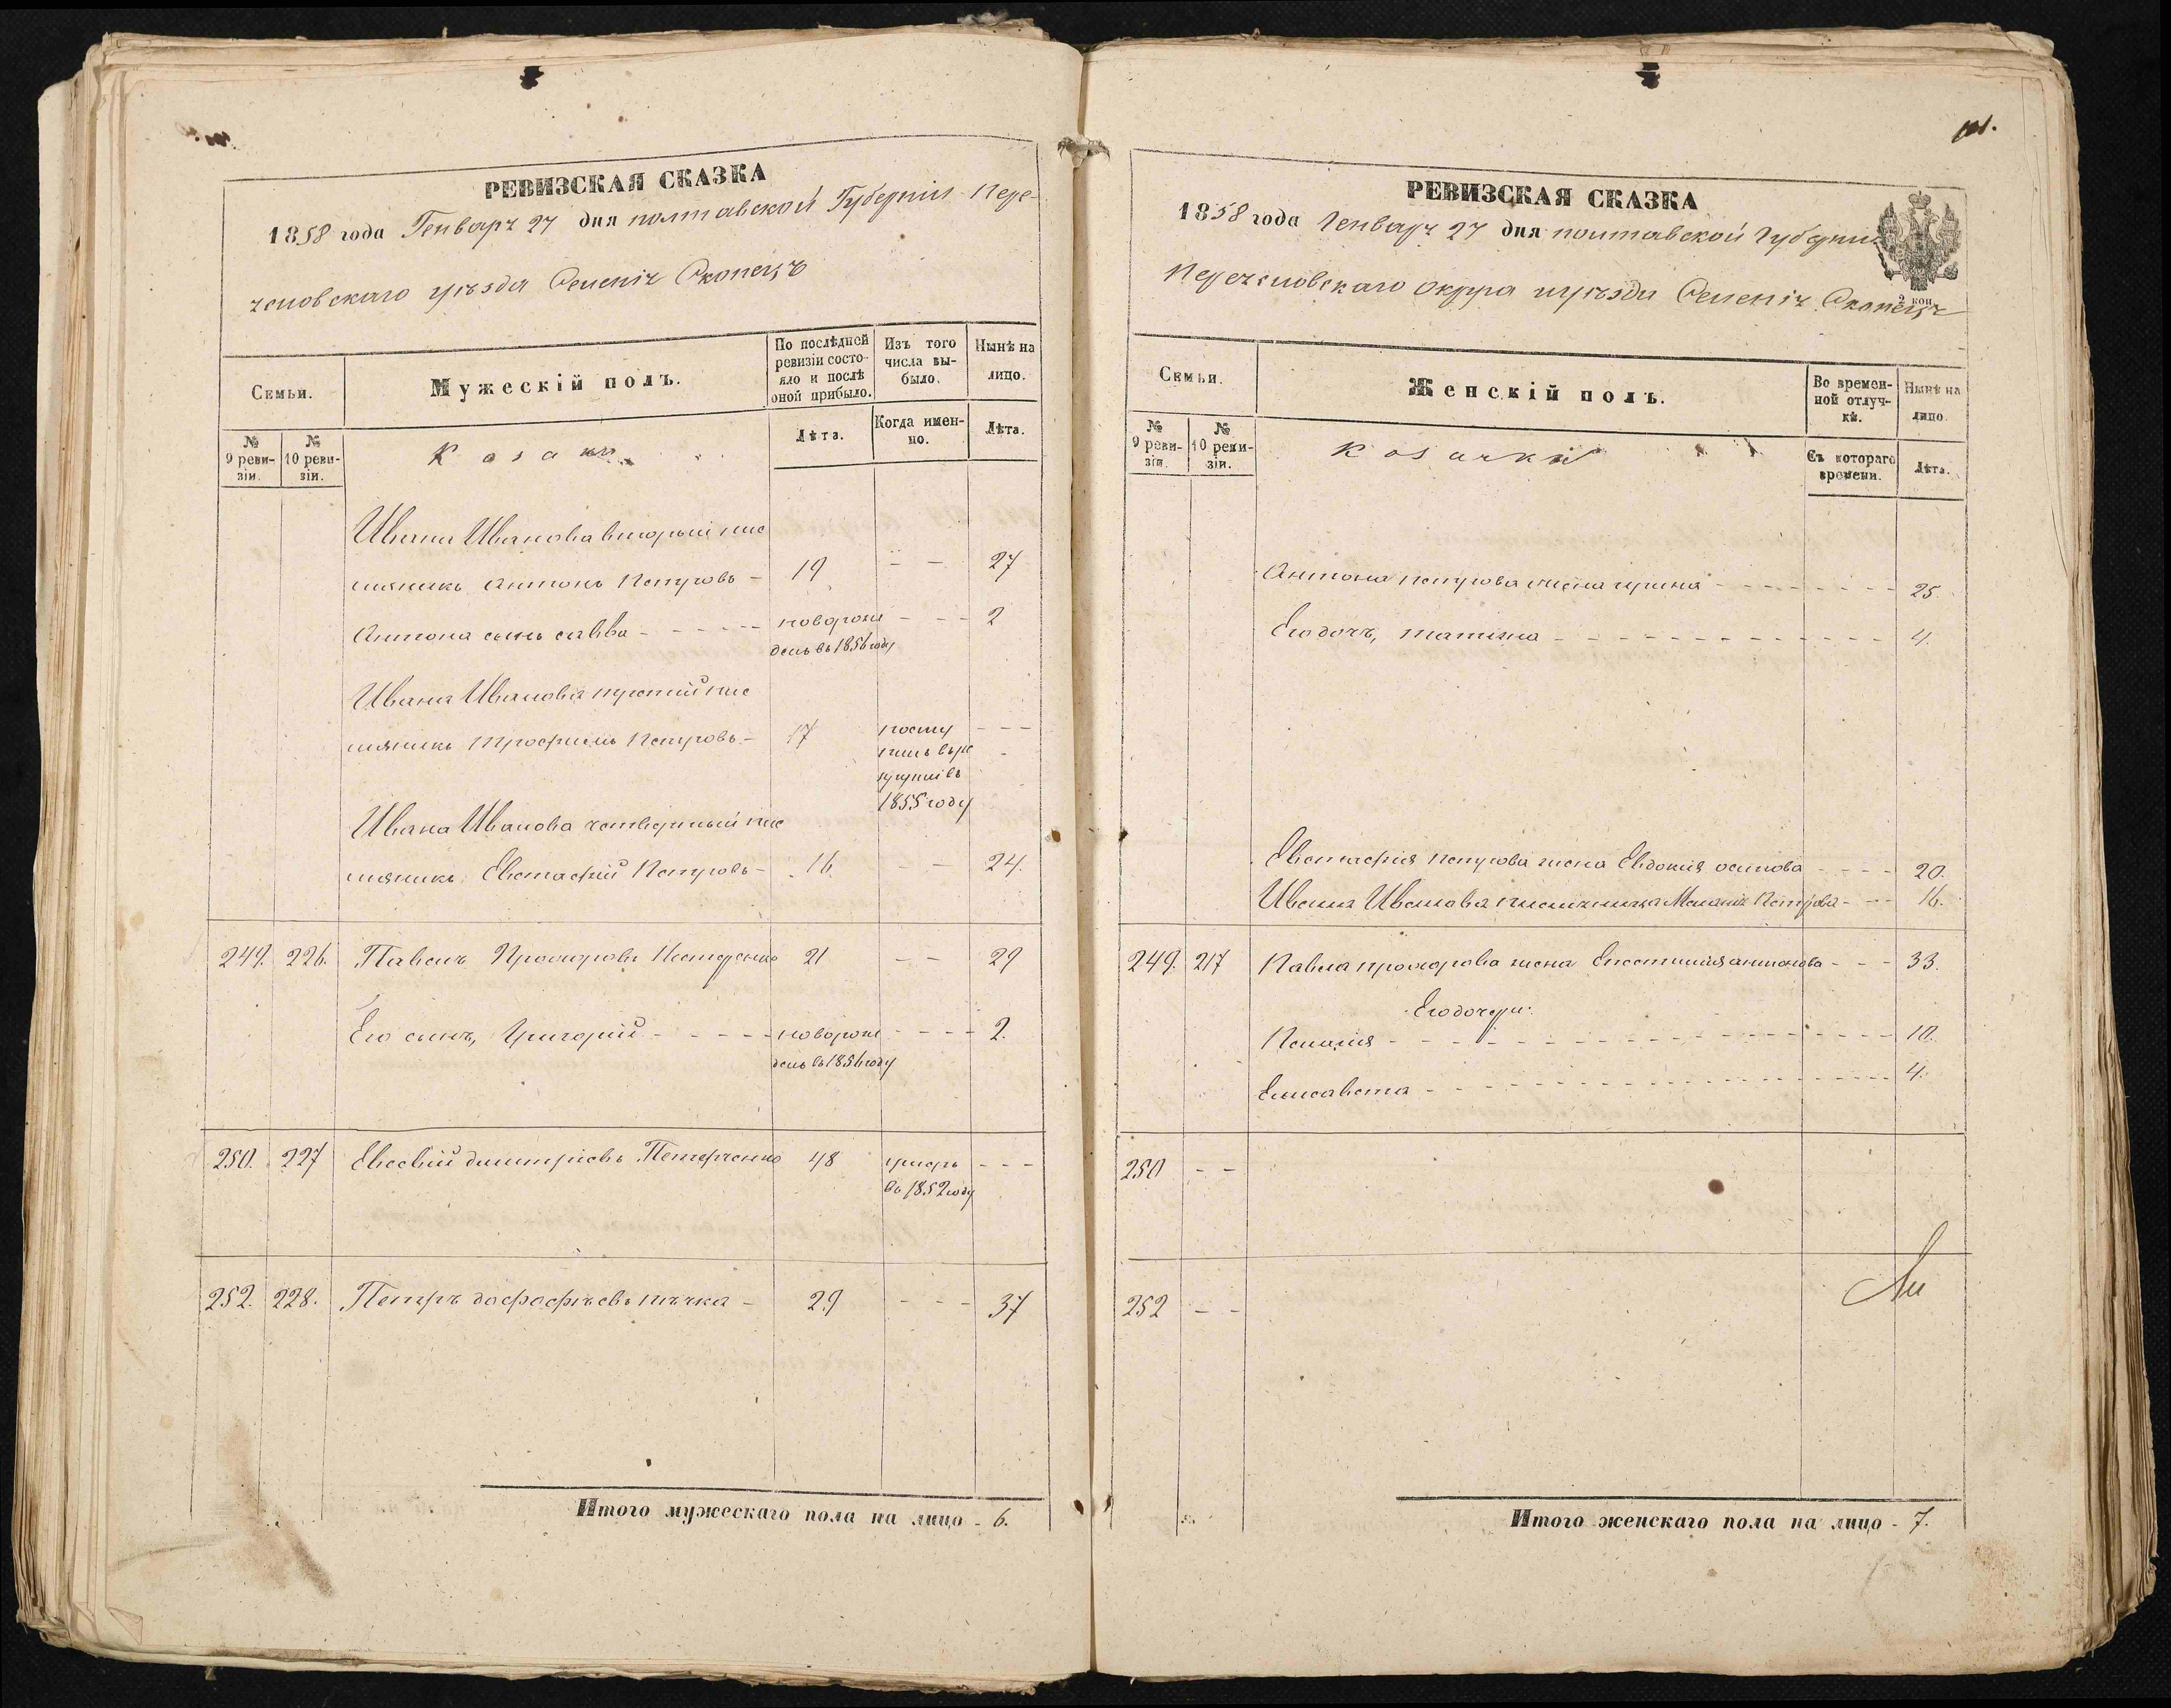 РЕВИЗСКАЯ СКАЗКА
1858 года Генваря 27 дня полтавской Губерніи Пере-
яславскаго уѣзда Селенія Скопецъ
Семьи.
Мужескій полъ.
По послѣдней ревизіи состо-
яло и послѣ оной прибыло.
Изъ того числа вы-
было.
Нынѣ на лицо.
№ 9 реви-
зіи.
№ 10 реви-
зіи.
Козаки
Лѣта.
Когда имен-
но.
Лѣта.
Ивана Иванова вторый пле
мяникъ Антонъ Петровъ - 19 - - 27
Антона сынъ Савва - - - - - новорож - - - 2
денъ въ 1856 году
Ивана Иванова третій пле
мяникъ Трофимъ Петровъ - 17 посту - - -
1855 году
Ивана Иванова четвертый пле
мяникъ Евстафій Петровъ - 16. - - 24.
249. 226. Павелъ Прохоровъ Нестеренко 21 - - 29
Его сынъ, Григорій - - - - - новорож - - - - 2.
денъ въ 1856 году
250. 227 Евсевій димитріевъ 48 умеръ - - -
въ 1852 году
252. 228. Петръ - 29 - - - 37
Итого мужескаго пола на лицо - 6.
РЕВИЗСКАЯ СКАЗКА
1858 года Генваря 27 дня полтавской Губерніи
Переяславскаго округа уѣзда Селенія Скопецъ
2 коп.
Семьи.
Женскій полъ.
Во времен-
ной отлуч-
кѣ.
Нынѣ на лицо.
№ 9 реви-
зія.
№ 10 реви-
зіи.
Козачки
Съ котораго времени.
Лѣта.
Антона петрова жена ирина - - - - - - - - 25.
Его дочь, татіяна - - - - - - - - - - - - 4.
Евстафія петрова жена Евдокія осипова - - - - 20.
Ивана Иванова племянница Меланія Петрова - - - 16.
249. 217 Павла прохорова жена антонова - - - 33.
Его дочери:
Пелагія - - - - - - - - - - - - - - - 10.
Елисавета - - - - - - - - - - - - - - 4.
250 - -
252 - -
Итого женскаго пола на лицо - 7.